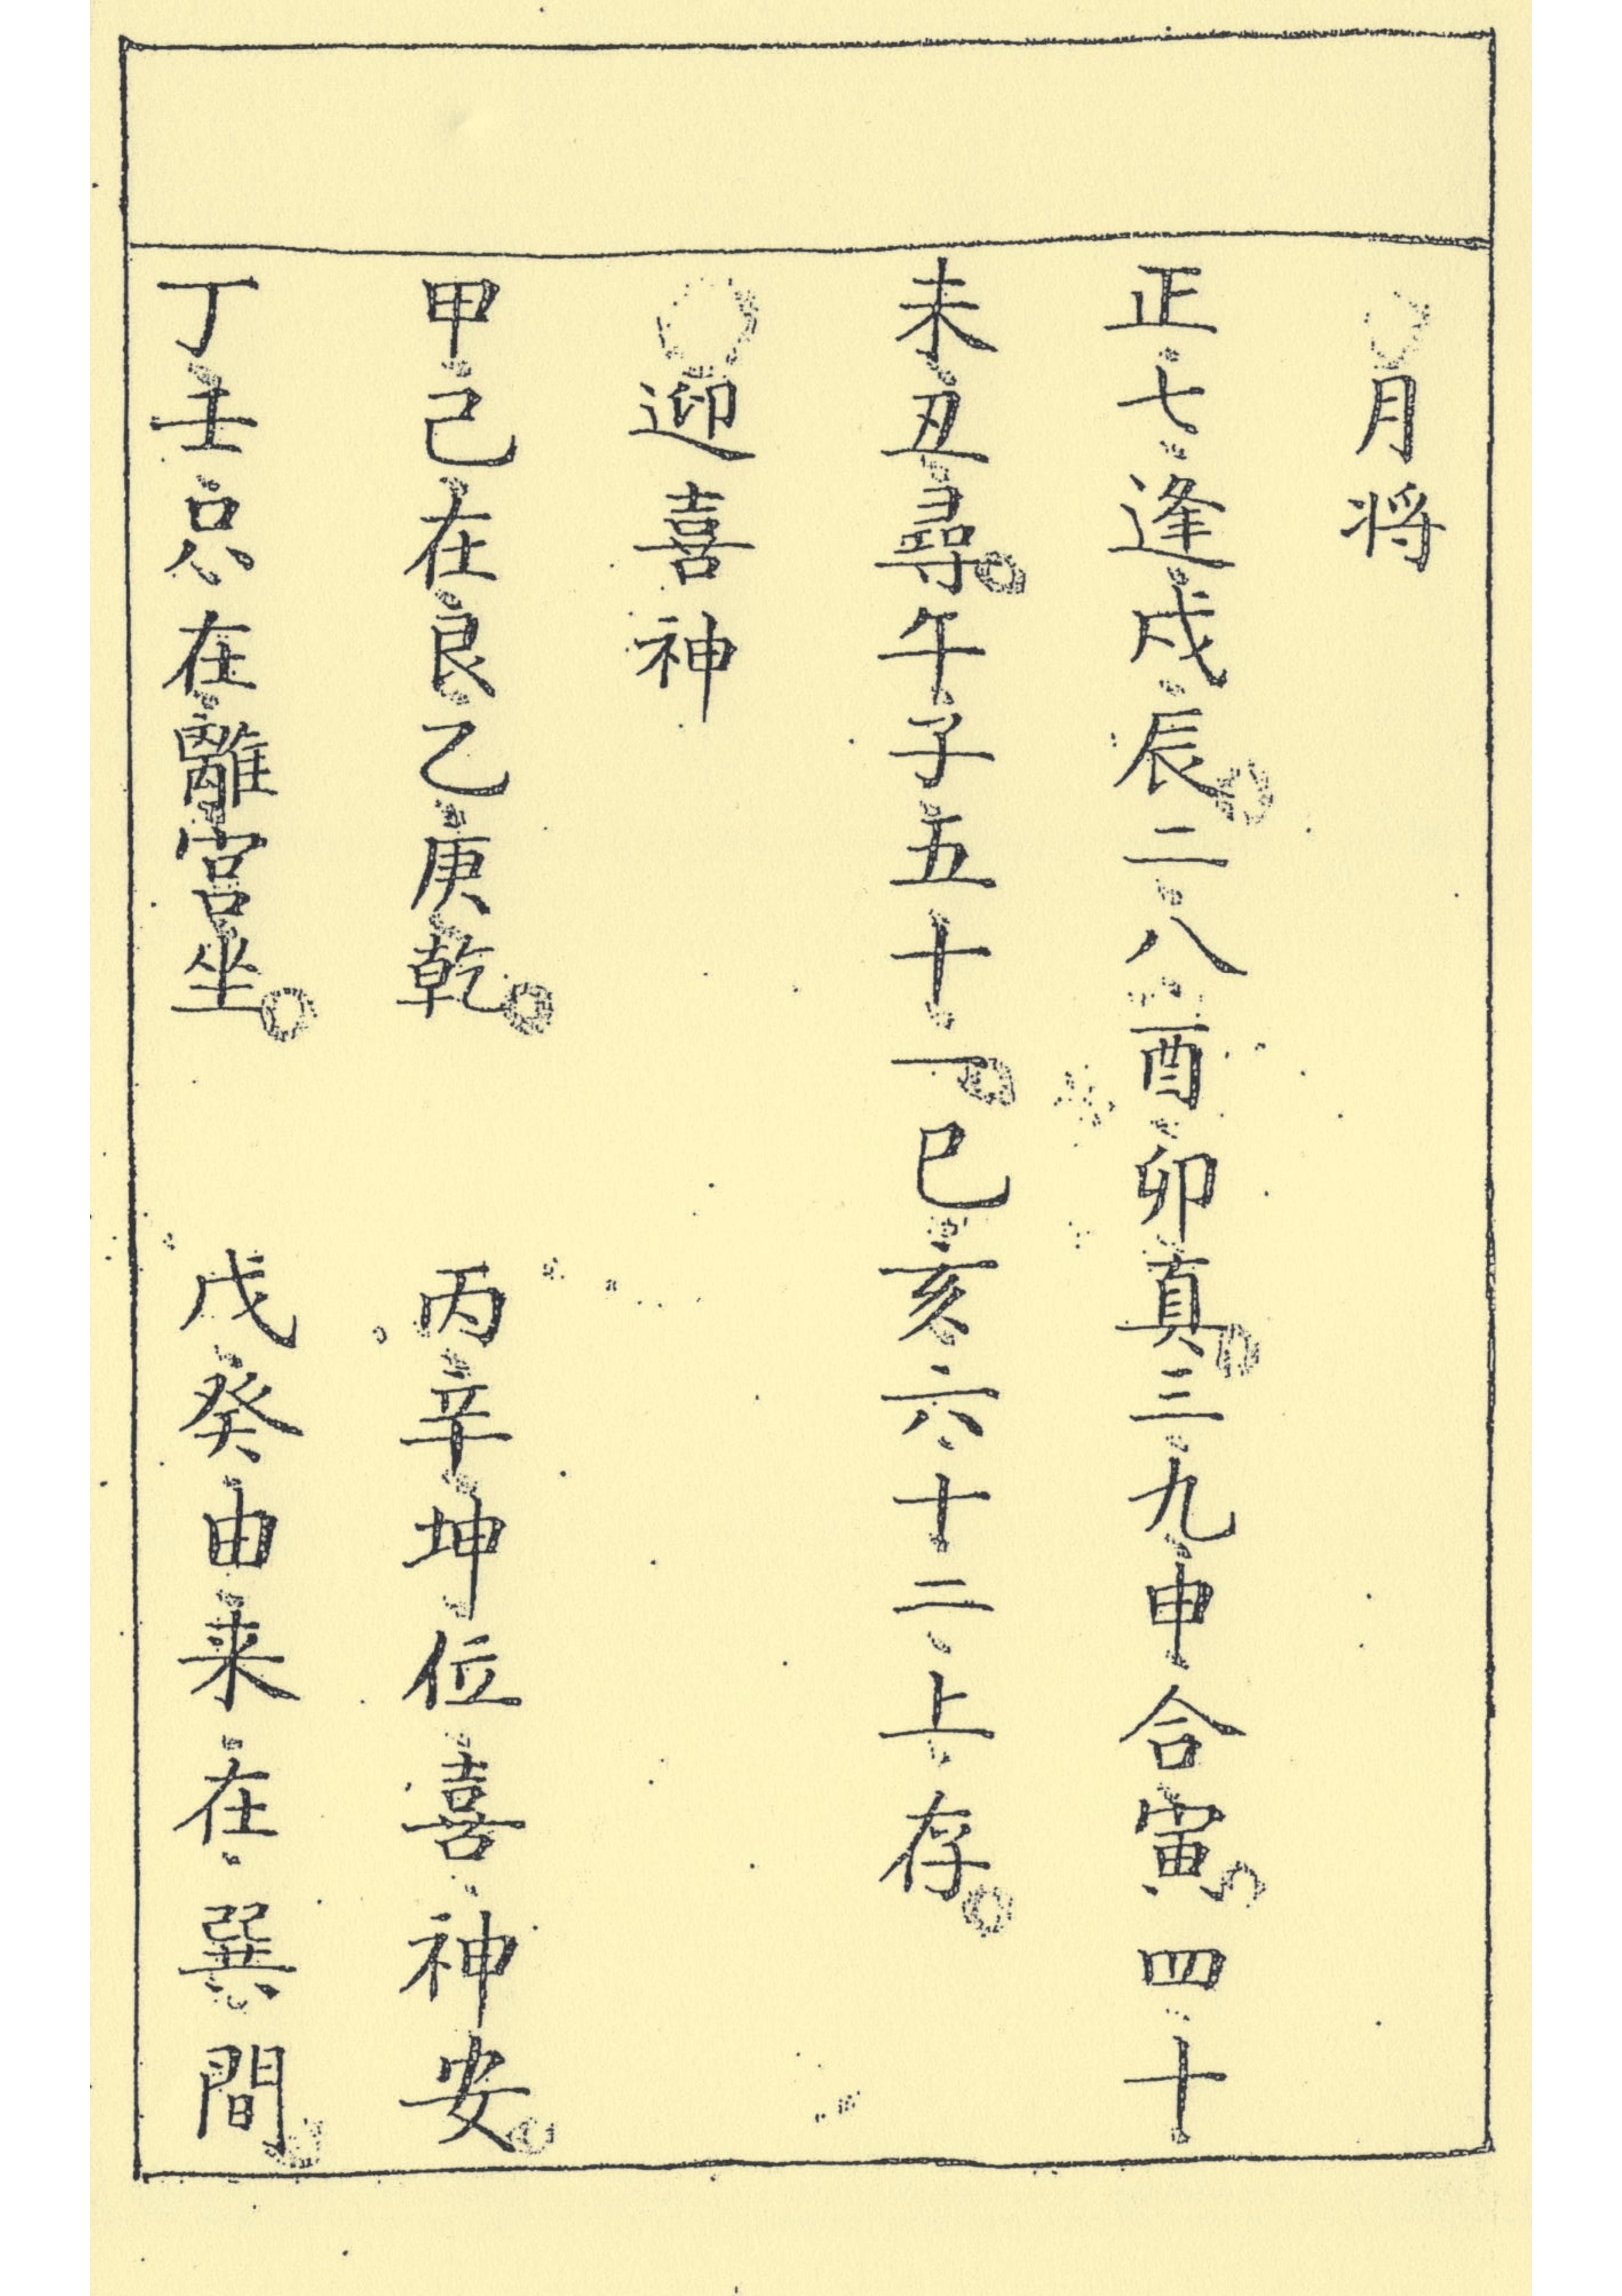 ○月将
正七逢戌辰。二八酉卯真。三九申合寅。四十
未丑尋。午子五十一。巳亥六十二上存。
○迎喜神
甲己在艮乙庚乾。丙辛坤位喜神安。
丁壬只在離宮坐。戊癸由来在巽間。